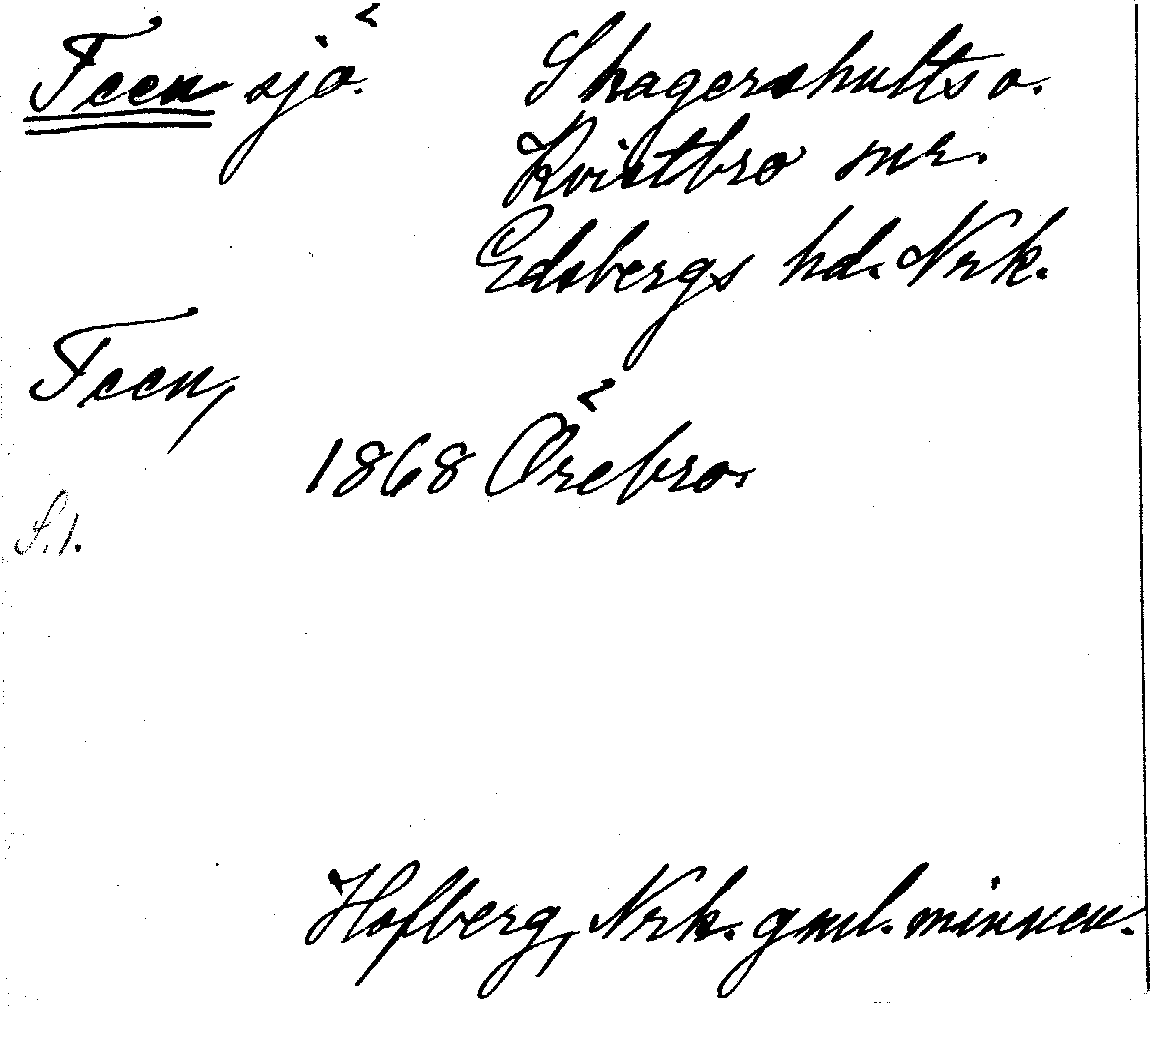 Teen sjö.
Skagershults o.
Kvistbro snr.
Edsbergs hd. Nrk.
Teen,
1868 Örebro.
s. 1.
Hofberg, Nrk. gml. minnen.